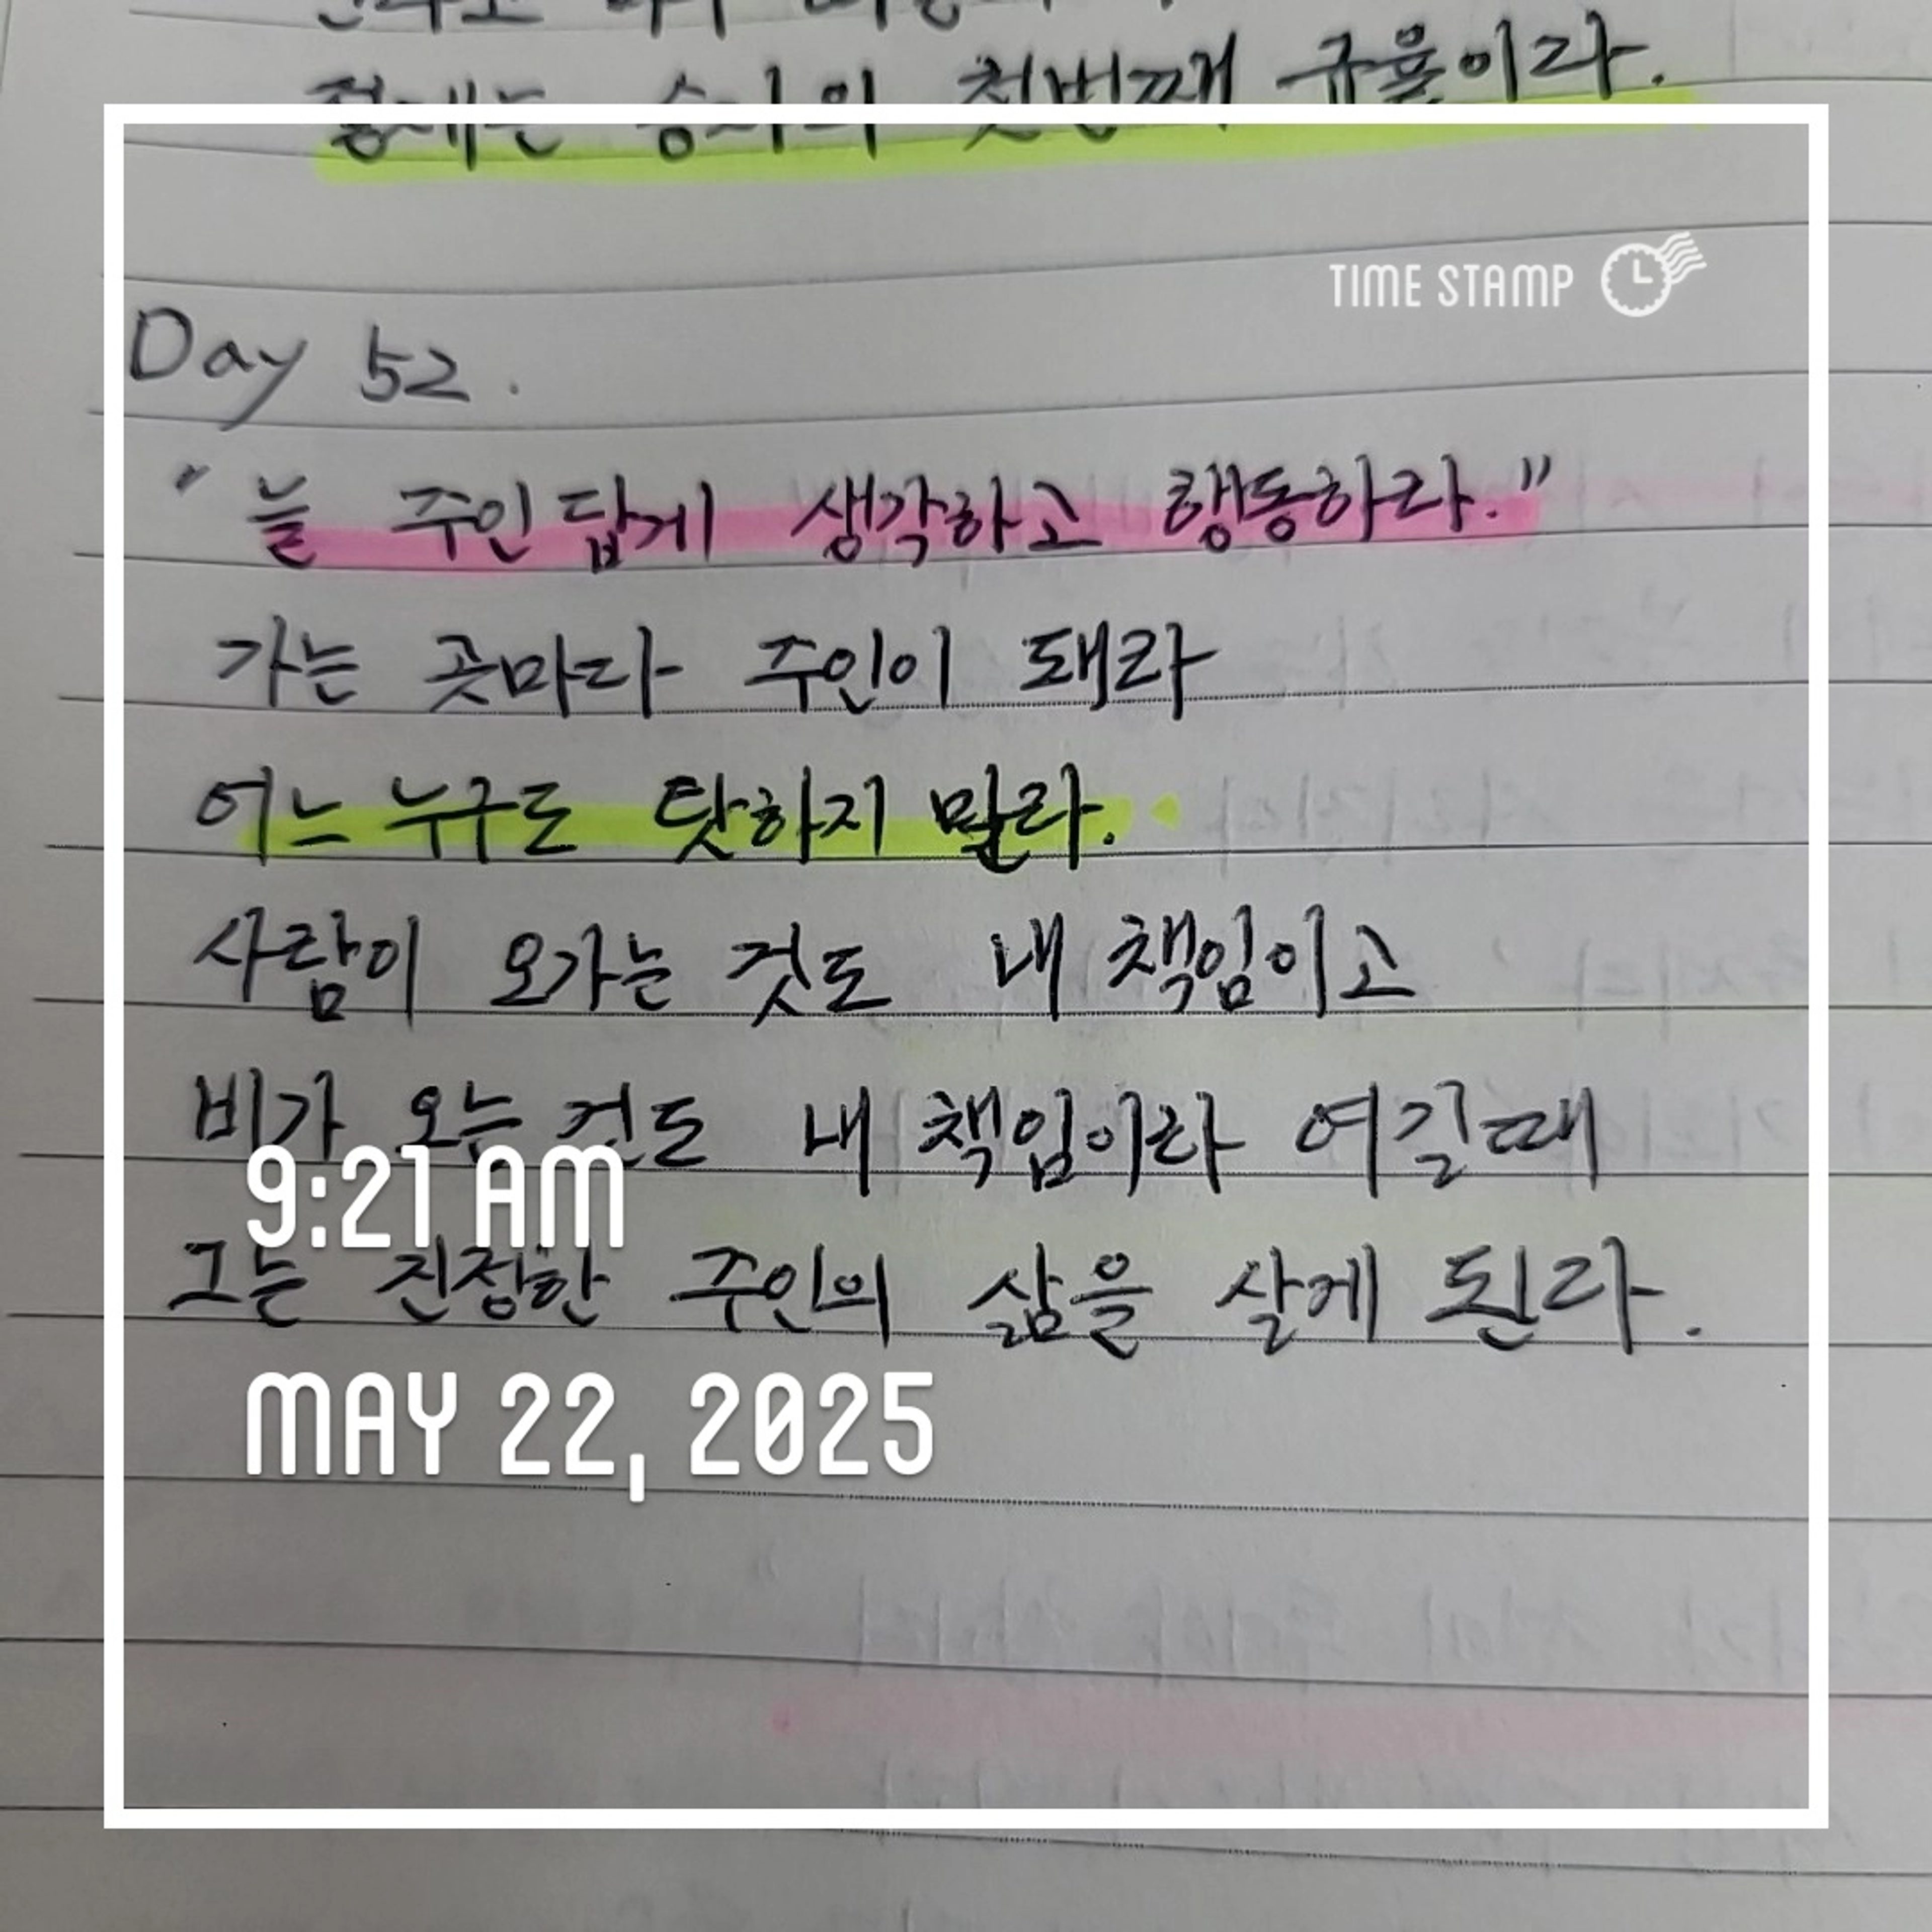 절제는 승자의 첫번째 규율이다.
TIME STAMP
Day 52.
"늘 주인답게 생각하고 행동하라."
가는 곳마다 주인이 돼라
어느 누구도 탓하지 말라.
사람이 오가는 것도 내 책임이고
비가 오는 것도 내 책임이라 여길때
9:21 AM
그는 진정한 주인의 삶을 살게 된다.
MAY 22, 2025